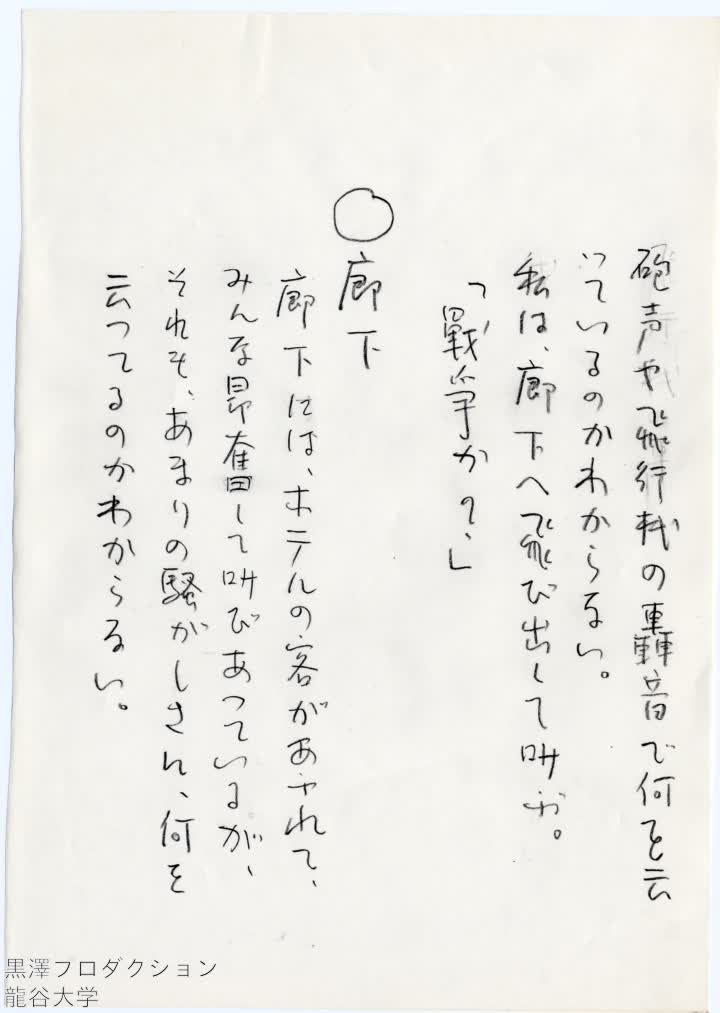 砲声や飛行機の轟音で何を云
っているのかわからない。
私は、廊下へ飛び出して叫ぶ。
「戦争か？」
○廊下
廊下には、ホテルの客があふれて、
みんな昂奮して叫びあっているが、
それも、あまりの騒がしさに、何を
云ってるのかわからない。
黒澤プロダクション
龍谷大学